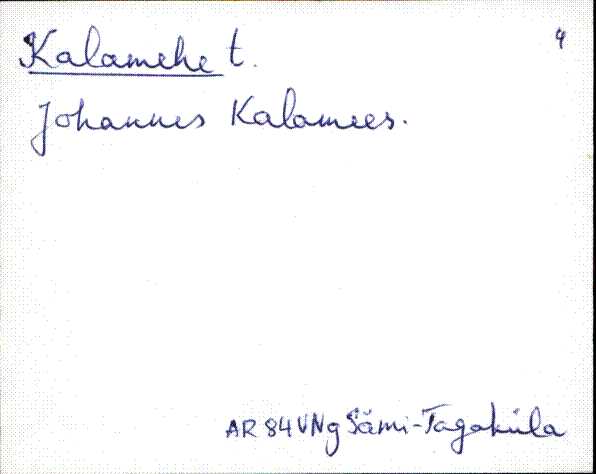 Kalamehe t. 4
Johannes Kalamees.
AR 84 VNg Sämi-Tagaküla